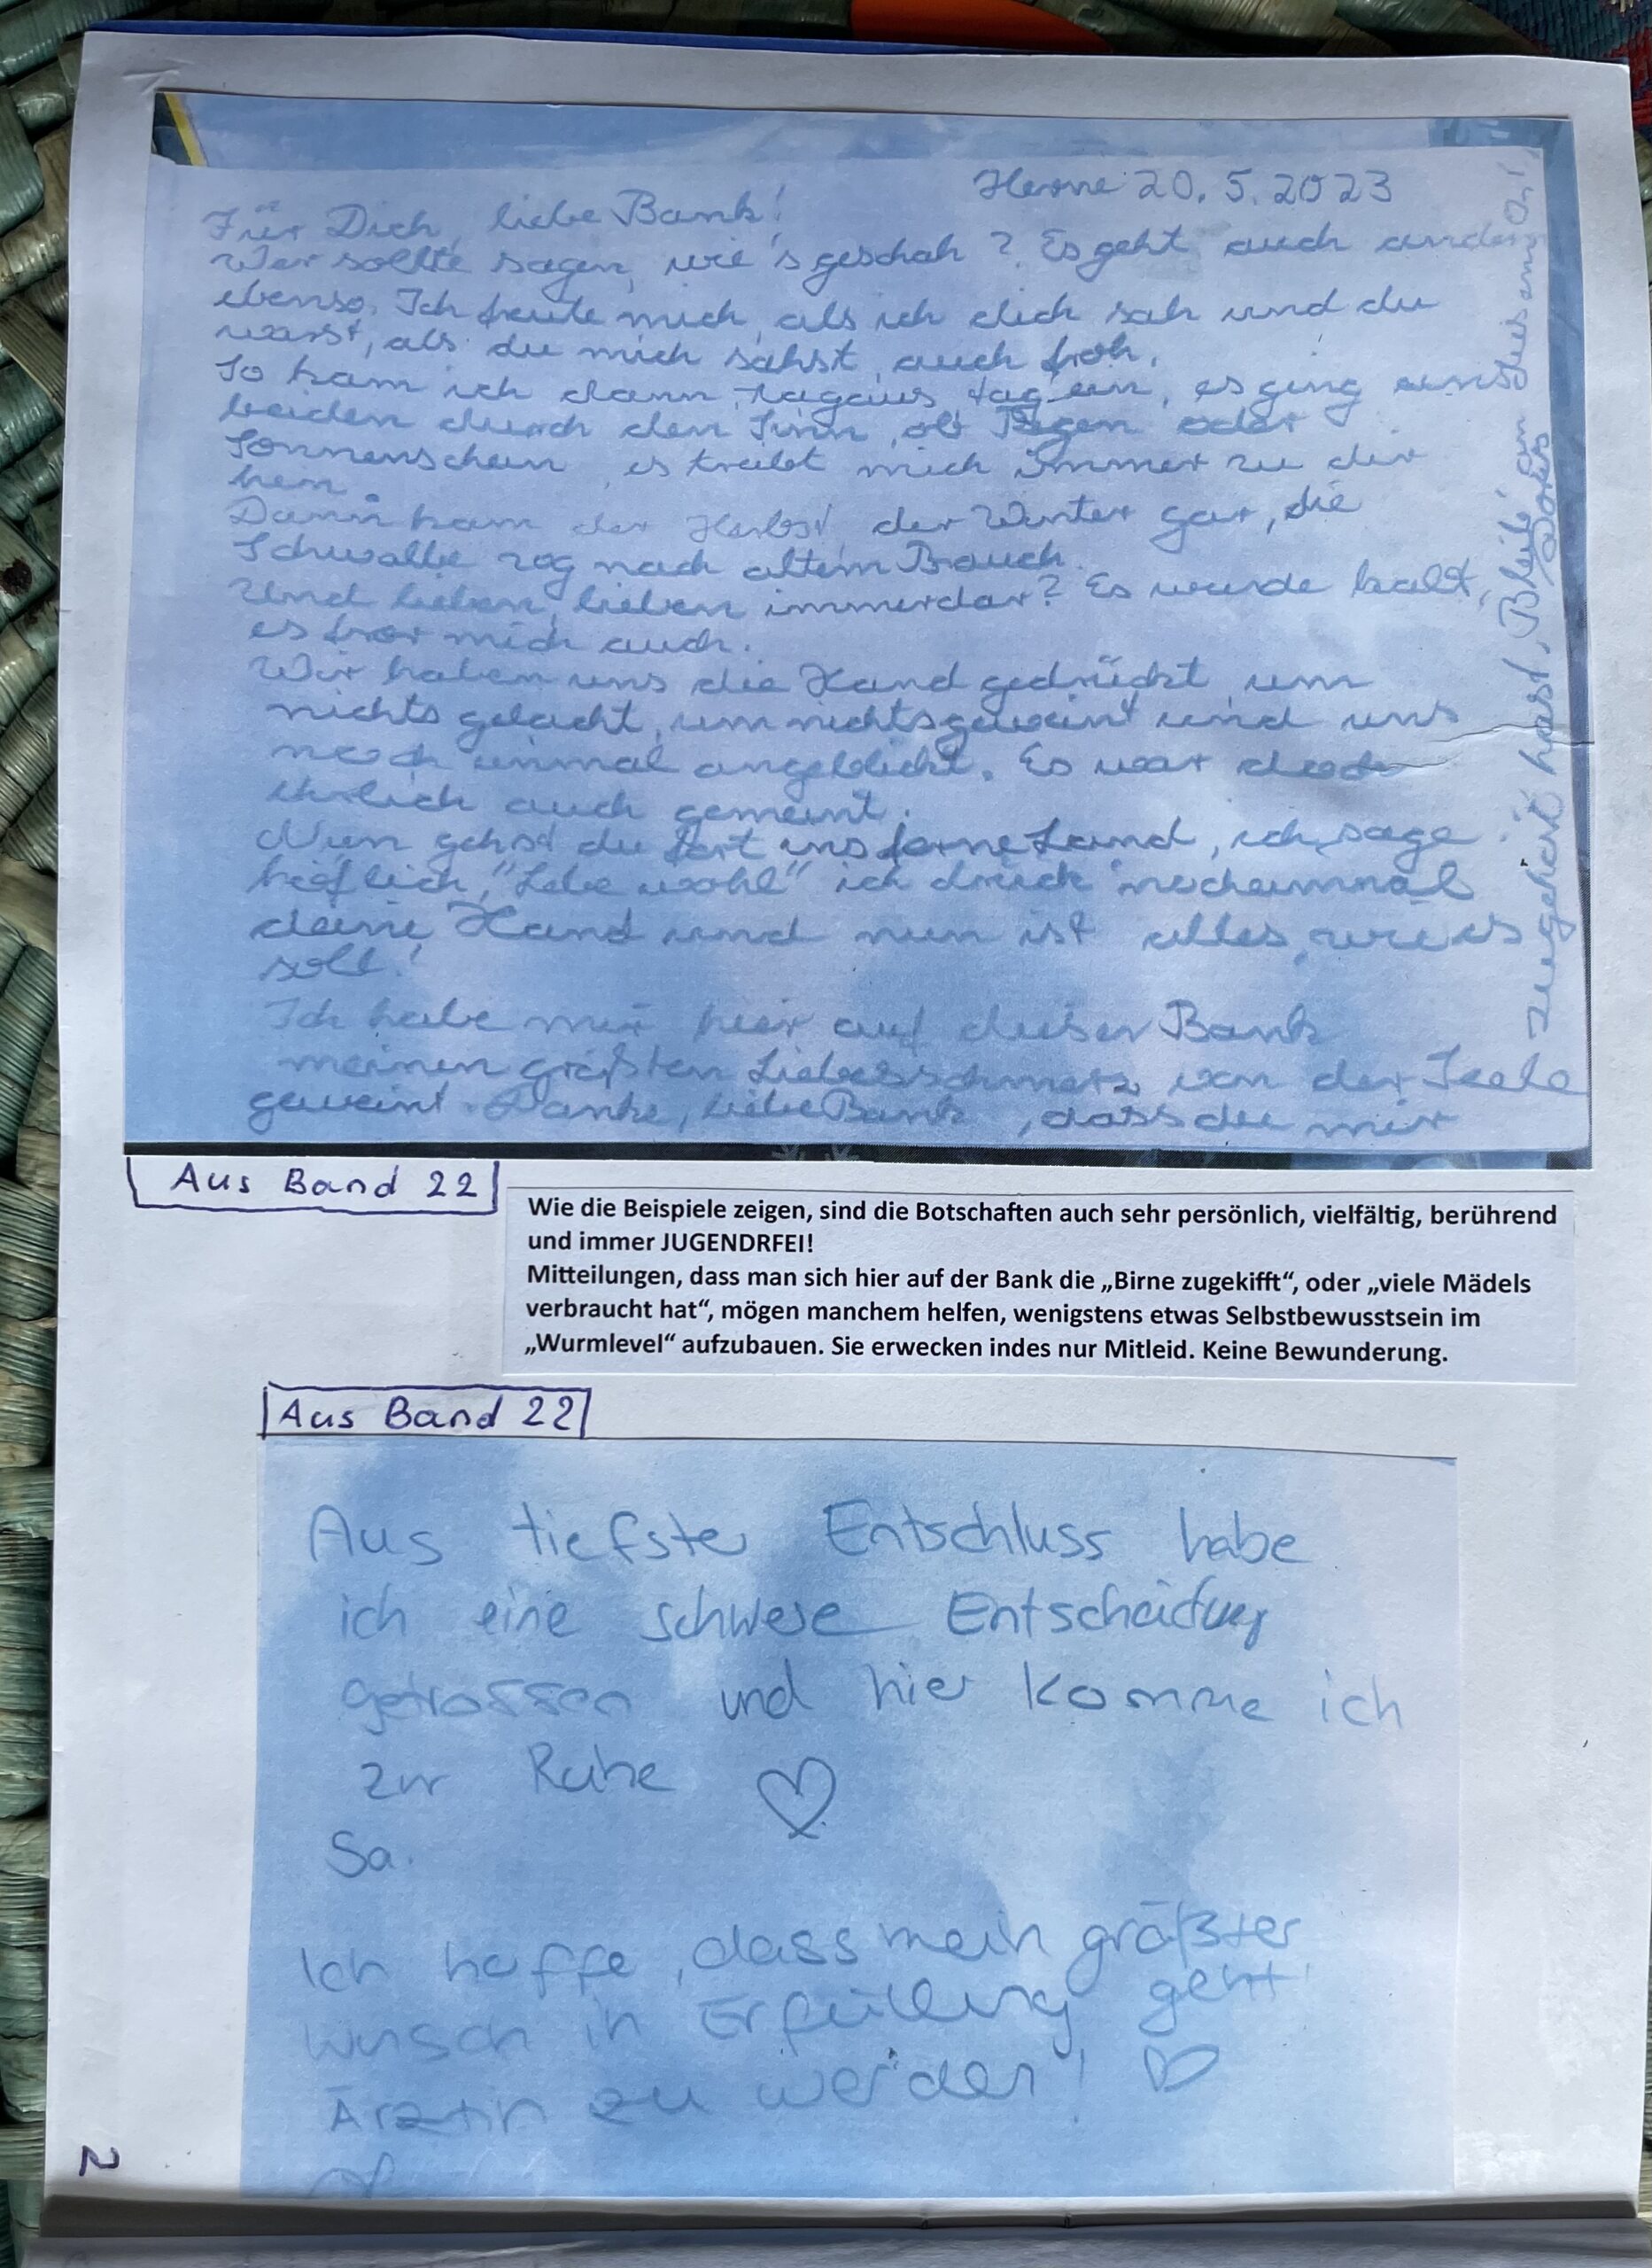 Herne 20.5.2023
Für Dich, liebe Bank!
Wer sollte sagen, wie's geschah? Es geht auch andern
ebenso. Ich freute mich, als ich dich sah und du
warst, als du mich sahst, auch froh.
So kam ich dann, tagaus tagein, es ging uns
beiden durch den Sinn, ob Regen oder
Sonnenschein, es treibt mich immer zu dir
hin.
Dann kam der Herbst, der Winter gar, die
Schwalbe zog nach altem Brauch.
Und lieben, lieben immerdar? Es wurde kalt,
es fror mich auch.
Wir haben uns die Hand gedrückt, um
nichts gelacht, um nichts geweint und uns
noch einmal angeblickt. Es war doch
ehrlich auch gemeint.
Nun gehst du fort ins ferne Land, ich sage
höflich, "Lebe wohl" ich drück nocheinmal
deine Hand und nun ist alles, wie es
soll!
Ich habe mir hier auf dieser Bank
meinen größten Liebesschmerz von der Seele
geweint. Danke, liebe Bank, dass du mir
zugehört hast. Bleib an diesem Ort!
Doris
Aus Band 22
Wie die Beispiele zeigen, sind die Botschaften auch sehr persönlich, vielfältig, berührend
und immer JUGENDRFEI!
Mitteilungen, dass man sich hier auf der Bank die „Birne zugekifft“, oder „viele Mädels
verbraucht hat“, mögen manchem helfen, wenigstens etwas Selbstbewusstsein im
„Wurmlevel“ aufzubauen. Sie erwecken indes nur Mitleid. Keine Bewunderung.
Aus Band 22
Aus tiefster Entschluss habe
ich eine schwere Entscheidung
getroffen und hier komme ich
zur Ruhe
Sa.
Ich hoffe, dass mein größter
Wunsch in Erfüllung geht
Ärztin zu werden!
2